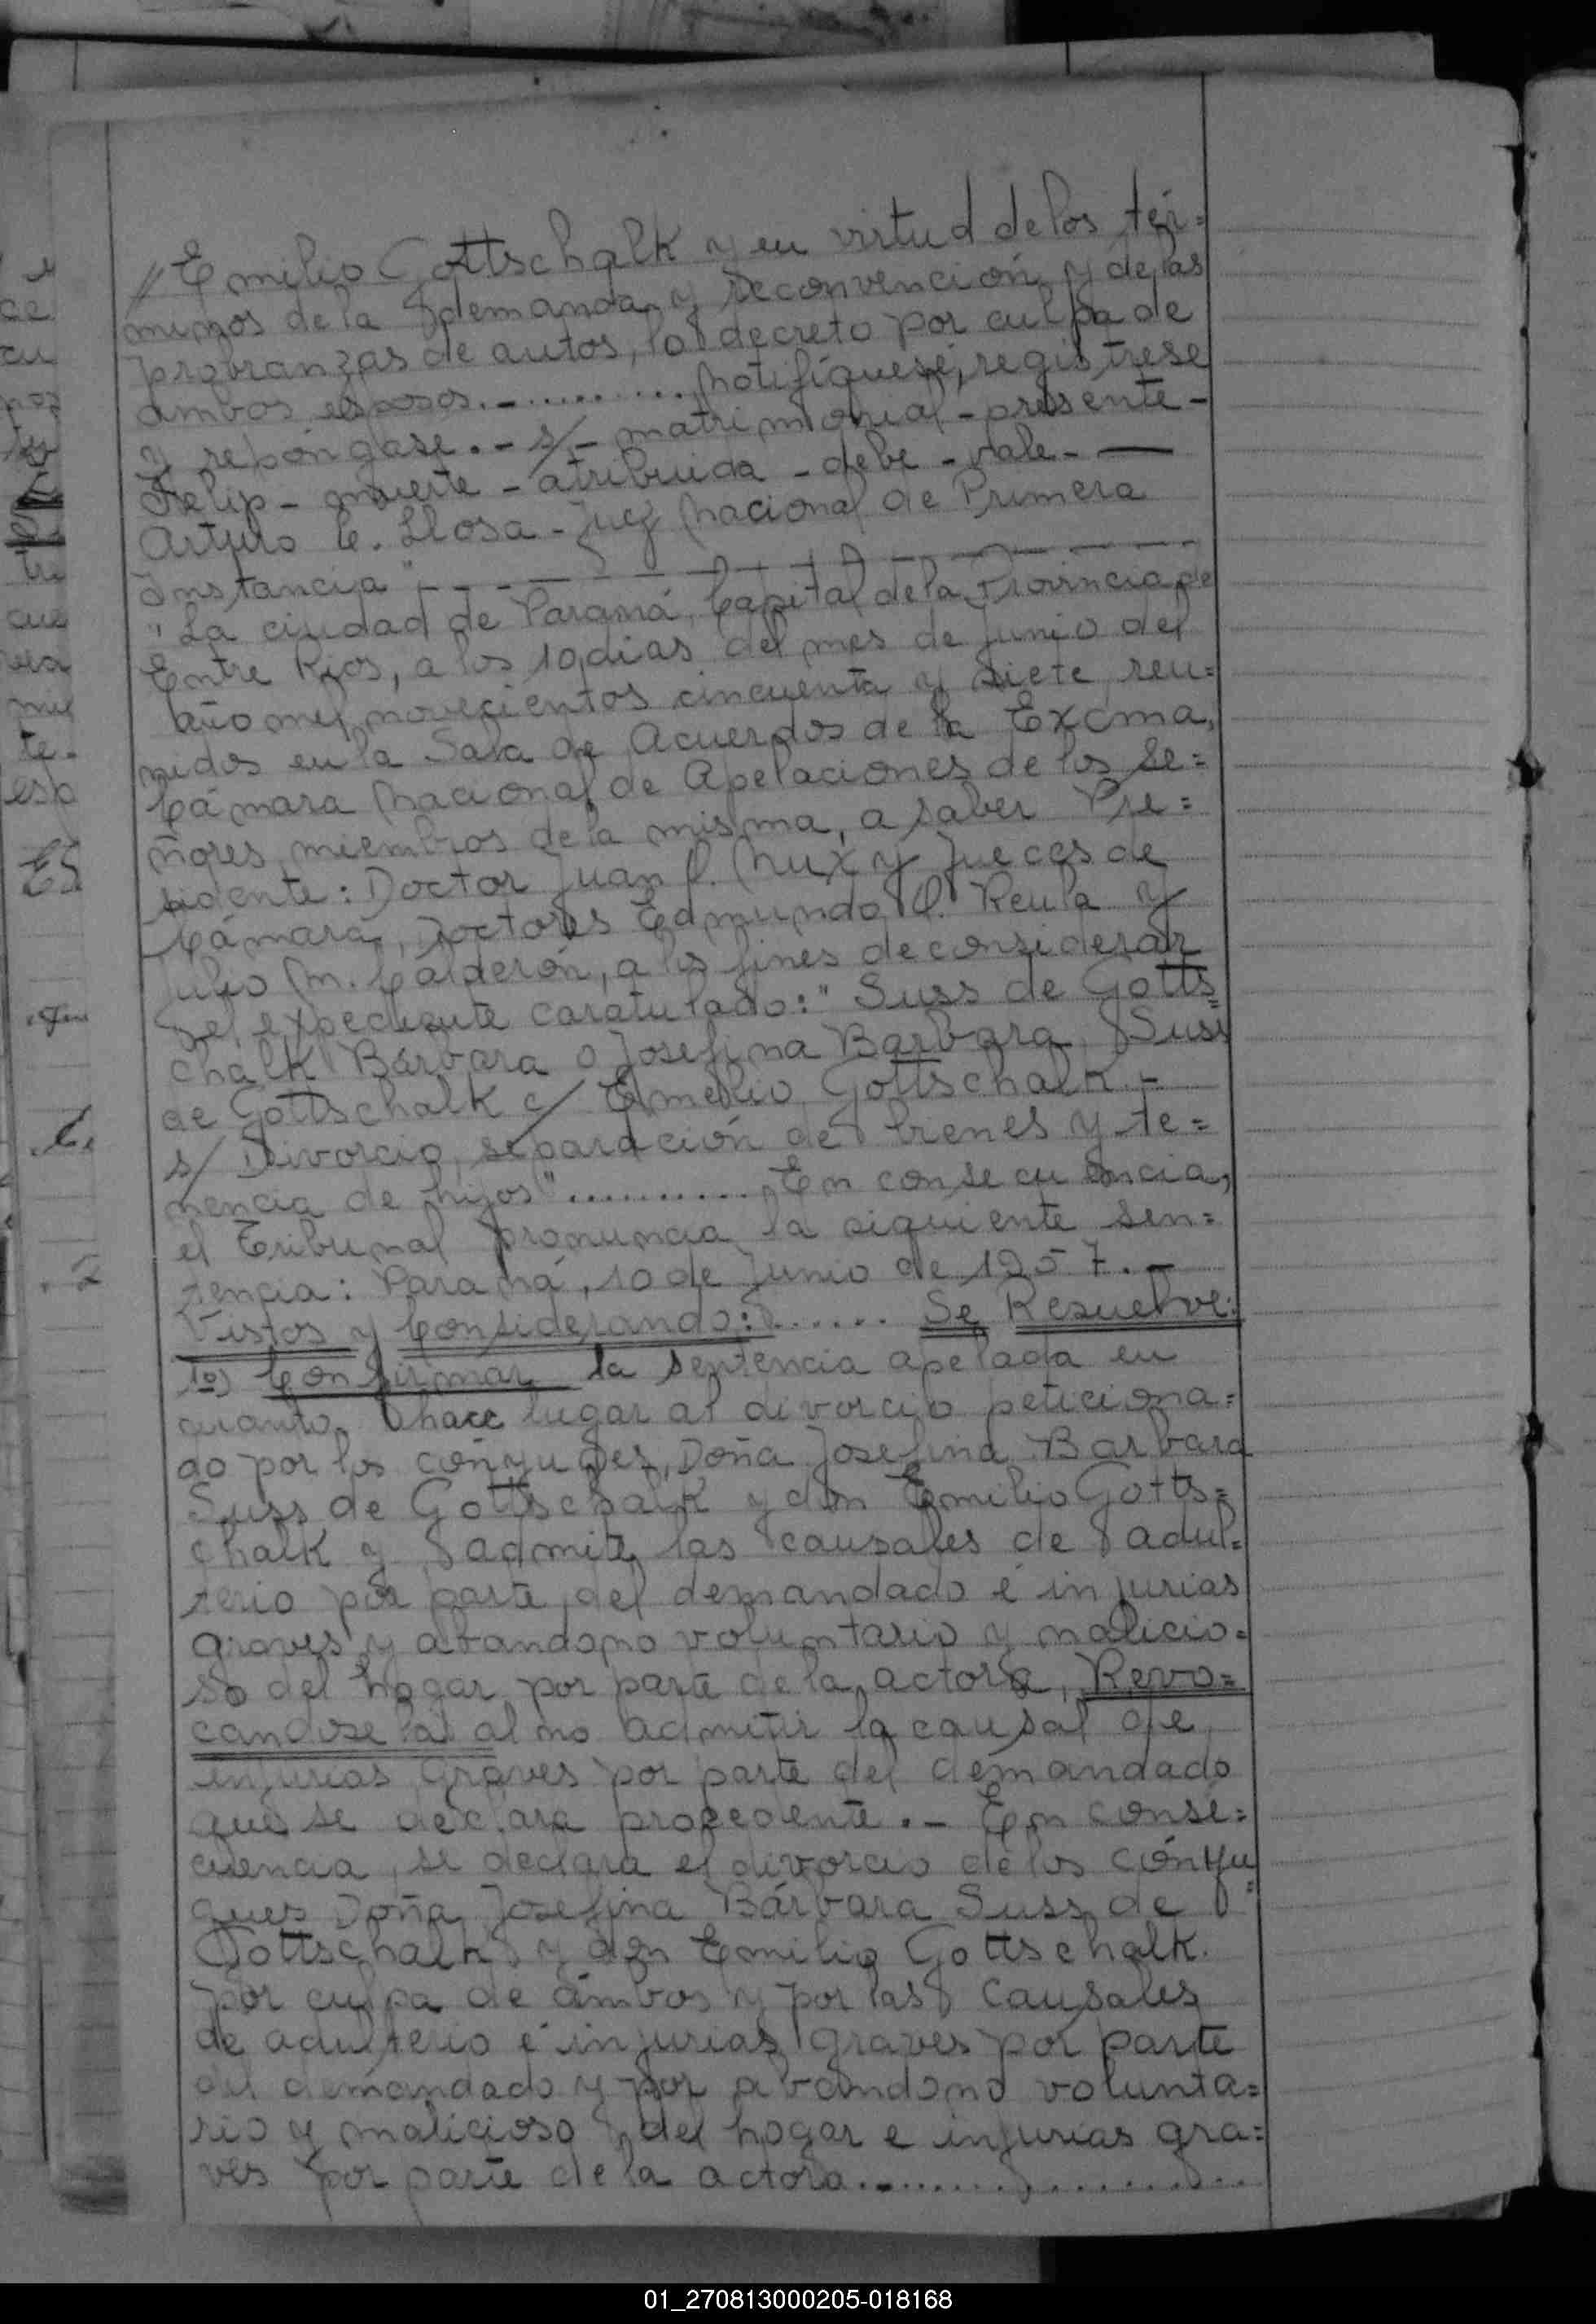 // Emilio Gottschalk y en virtud de los tér=
minos de la demanda y reconvención y de las
probranzas de autos, lo decreto por culpa de
ambos esposos.-.......... Notifíquese, regístrese
y repóngase.- s/- matrimonial - presente -
Felip - muerte - atribuida - debe - vale - —
Arturo C. Llosa - Juez Nacional de Primera
Instancia" - - - - - - - - - - - - - -
"La ciudad de Paraná, Capital de la Provincia de
Entre Ríos, a los 10 días del mes de Junio del
año mil novecientos cincuenta y siete, reu=
nidos en la Sala de Acuerdos de la Excma.
Cámara Nacional de Apelaciones de los Se=
ñores miembros de la misma, a saber Pre=
sidente: Doctor Juan P. Nux y Jueces de
Cámara, Doctores Edmundo P. Reula y
Julio M. Calderón, a los fines de considerar
el expediente caratulado: "Suss de Gotts=
chalk Bárbara o Josefina Barbara Suss
de Gottschalk c/ Emilio Gottschalk -
s/ Divorcio, separación de bienes y te=
nencia de hijos"........... En consecuencia,
el Tribunal pronuncia la siguiente sen=
tencia: Paraná, 10 de Junio de 1957.-
Vistos y Considerando: ...... Se Resuelve:
1o) Confirmar la sentencia apelada en
cuanto hace lugar al divorcio peticiona=
do por los cónyuges, Doña Josefina Barbara
Suss de Gottschalk y don Emilio Gotts=
chalk y admite las causales de adul=
terio por parte del demandado é injurias
graves y abandono voluntario y malicio=
so del hogar por parte de la actora, Revo=
candose la al no admitir la causal de
injurias graves por parte del demandado
que se declara procedente.- En conse=
cuencia, se declara el divorcio de los cónyu=
gues Doña Josefina Bárbara Suss de
Gottschalk y don Emilio Gottschalk.
por culpa de ámbos y por las causales
de adulterio é injurias graves por parte
del demandado y por abandono volunta=
rio y malicioso del hogar e injurias gra=
ves por parte de la actora..................
01_270813000205-018168